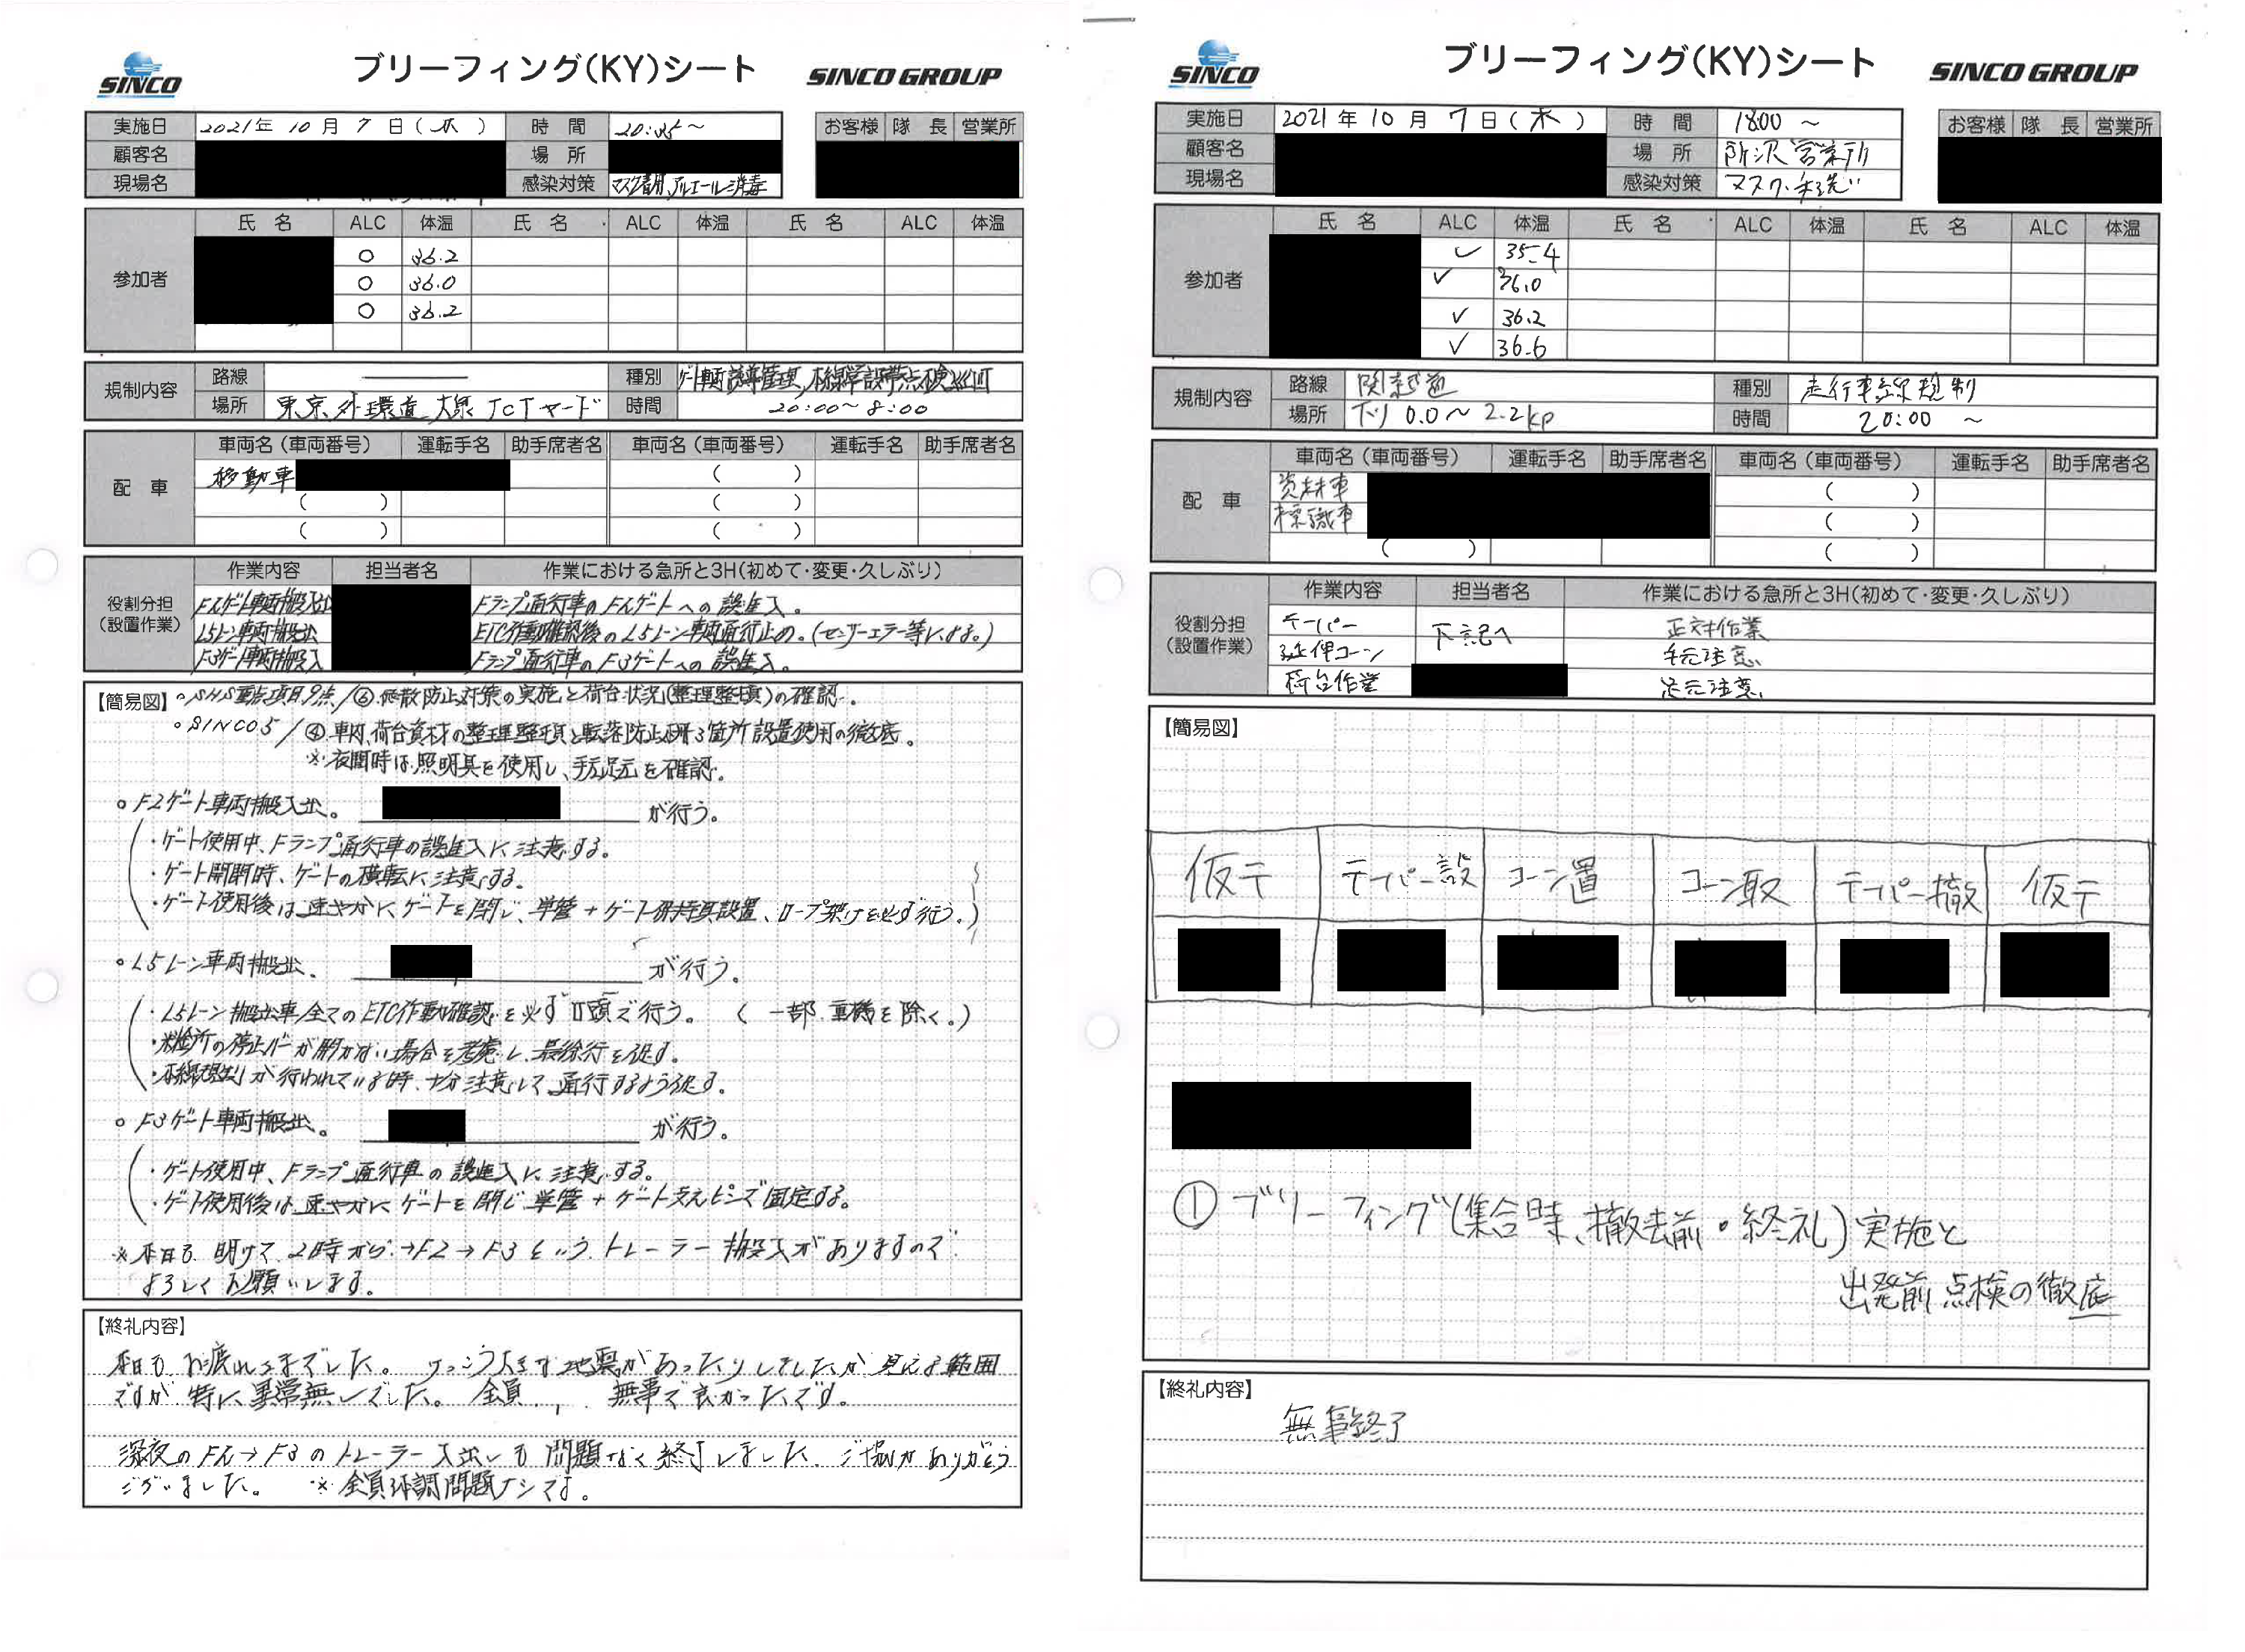 SINCO
ブリーフィング(KY)シート
SINCO GROUP
実施日 2021年 10月 7日(木) 時間 20:45~
お客様 隊長 営業所
顧客名 場所
現場名 感染対策 マスク着用、アルコール消毒
氏名 ALC 体温 氏名 ALC 体温 氏名 ALC 体温
参加者
○ 36.2
○ 36.0
○ 36.2
規制内容 路線 種別 ゲート車両誘導管理、本線常設帯点検巡回
場所 東京外環道 大泉JCTヤード 時間 20:00~8:00
配車 車両名(車両番号) 運転手名 助手席者名 車両名(車両番号) 運転手名 助手席者名
移動車 ( )
( ) ( )
( ) ( )
役割分担(設置作業) 作業内容 担当者名 作業における急所と3H(初めて・変更・久しぶり)
F2ゲート車両搬入出 Fランプ通行車のF2ゲートへの誤進入。
L5レーン車両搬出 ETC作動確認後のL5レーン車両通行止め。(センサーエラー等による。)
F3ゲート車両搬入 Fランプ通行車のF3ゲートへの誤進入。
【簡易図】 ○SHS重点項目9点/⑥.飛散防止対策の実施と荷台状況(整理整頓)の確認.
○SINCO5/④.車内、荷台資材の整理整頓と転落防止用3箇所設置使用の徹底.
※夜間時は、照明具を使用し、手元足元を確認.
○F2ゲート車両搬入出。 が行う。
・ゲート使用中、Fランプ通行車の誤進入に注意する。
・ゲート開閉時、ゲートの横転に注意する。
・ゲート使用後は速やかにゲートを閉じ、単管+ゲート保持具設置、ロープ架けを必ず行う。
○L5レーン車両搬出. が行う。
・L5レーン搬出車全てのETC作動確認を必ず口頭で行う。(一部、重機を除く。)
・料金所の停止バーが開かない場合を考慮し、最徐行を促す。
・本線規制が行われている時、十分注意して、通行するよう促す。
○F3ゲート車両搬出。 が行う。
・ゲート使用中、Fランプ通行車の誤進入に、注意する。
・ゲート使用後は、速やかにゲートを閉じ単管+ゲート支えピンで固定する。
※本日も、明けて2時から→F2→F3という、トレーラー搬入がありますので
よろしくお願いします。
【終礼内容】
本日も、お疲れさまでした。けっこう大きな地震があったりしましたが見える範囲
ですが、特に異常無しでした。全員、無事で良かったです。
深夜のF2→F3のトレーラー入出しも問題なく終了しました、ご協力ありがとう
ございました。 ※全員体調問題ナシです。
SINCO
ブリーフィング(KY)シート
SINCO GROUP
実施日 2021年 10月 7日(木) 時間 18:00~
お客様 隊長 営業所
顧客名 場所 所沢営業所
現場名 感染対策 マスク・手洗い
氏名 ALC 体温 氏名 ALC 体温 氏名 ALC 体温
参加者
✓ 35.4
✓ 36.0
✓ 36.2
✓ 36.6
規制内容 路線 関越道 種別 走行車線規制
場所 下り 0.0~2.2kp 時間 20:00~
配車 車両名(車両番号) 運転手名 助手席者名 車両名(車両番号) 運転手名 助手席者名
資材車 ( )
標識車 ( )
( ) ( )
役割分担(設置作業) 作業内容 担当者名 作業における急所と3H(初めて・変更・久しぶり)
テーパー 下記へ 正対作業
延伸コーン 手元注意
荷台作業 足元注意
【簡易図】
仮テ テーパー設 コーン置 コーン取 テーパー撤 仮テ
①ブリーフィング(集合時、撤去前・終礼)実施と
出発前点検の徹底
【終礼内容】
無事終了